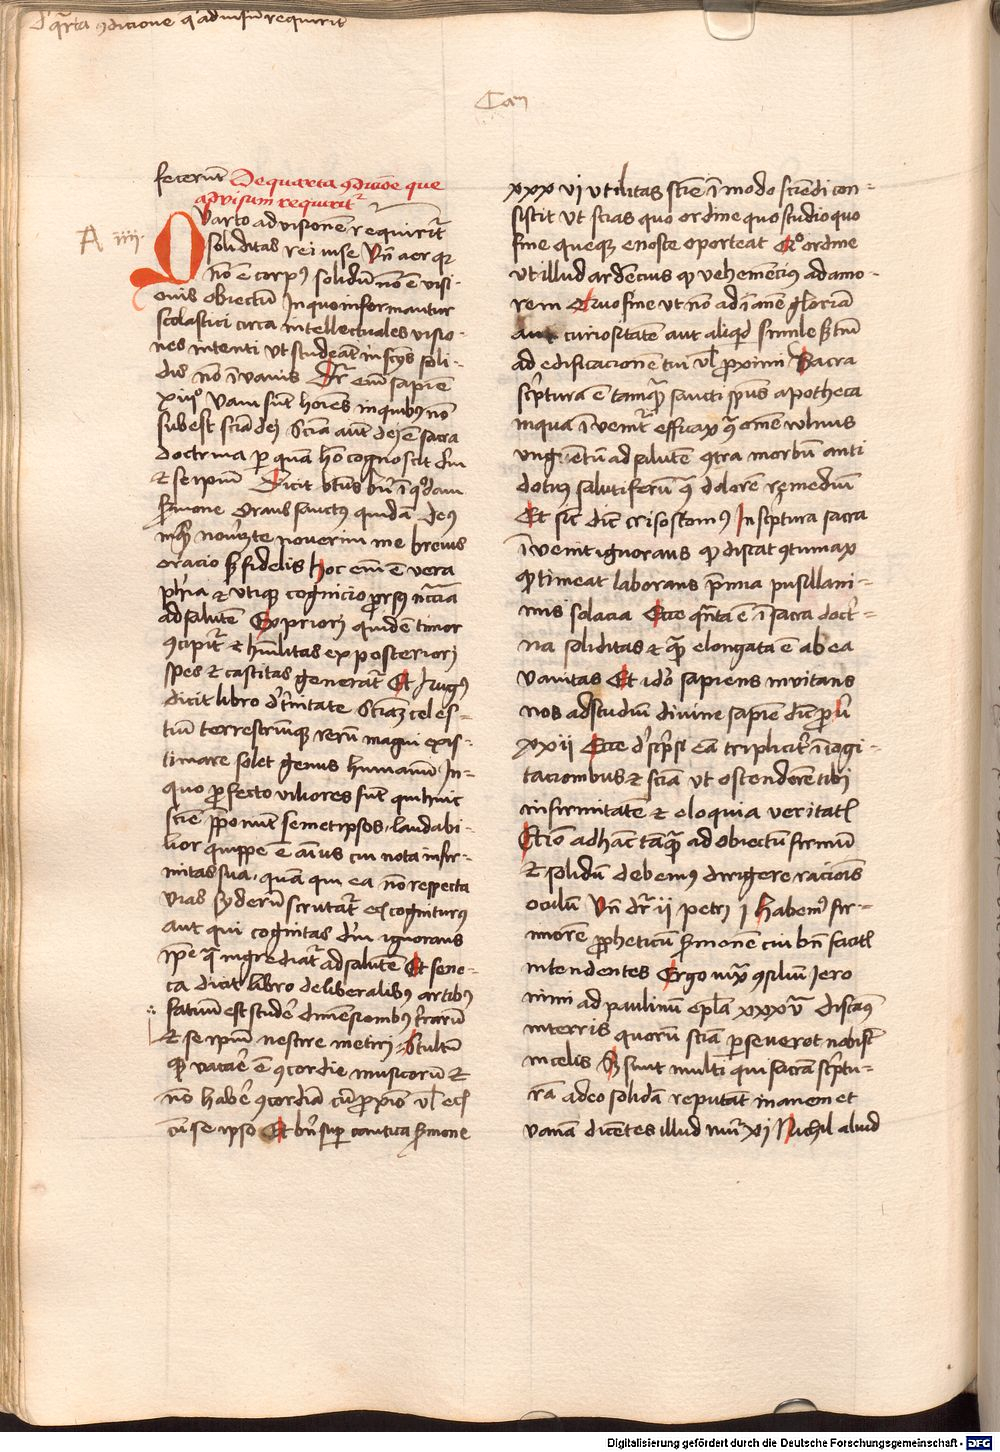 D' q̄rta ꝯdicione q̄ ad visum requirit
Cam
A iiij.
fecerūt De quarta ꝯdicōe que
ad visum requirit᷑
Quarto ad visionē requirit᷑
soliditas rei vise Vn̄ aer qꝛ
nō ē corpꝰ solidū nō ē visi-
onis obiectū In quo informantur
scolastici circa intellectuales visio-
nes intenti vt studeāt in scijs soli-
dis nō ī vanis Dr̄ em̄ sapiē
xiijº Vani sūt hoīes in quibꝰ nō
subest sciā dej Sciā aūt dej ē sacra
doctrina ꝑ quā hō cognoscit dm̄
et se ipm̄ Dicit btūs br̄n ī qᵒdam
ẜmone Orans sanctꝰ quidā Deꝰ
inq̄t nouerī te nouerim me breuis
oracio ẜ fidelis Hoc em̄ ē vera
ph̄ia et vtiqꝫ cognicio ꝓrsꝰ nc̄cīa
ad salutē Ex priorj quidē timor
ꝯcipit᷑ et hūilitas ex posteriorj
spes et castitas generat᷑ Et Augꝰ
dicit libro d' t'nitate Sciāꝫ celes-
tiū terrestriūqꝫ rerū magni exis-
timare solet genus humanū In-
quo ꝓfecto viliores sūt qui huic
scīe p̄ponūt semetipsos, laudabi-
lior quippe ē aīus cui nota infir-
mitas sua, quā qui ea nō respecta
vias syderū scrutat᷑ eciā cogniturꝰ
aut qui cognitas dm̄ ignorans
ip̄e q̄ ingrediat᷑ ad salutē Et sene-
ca dicit libro de liberalibꝰ artibꝰ
fatuū est studē' dimēsionibꝰ t'rarū
et se ipm̄ nescire metiri, Stultū
qꝫ vacar'e ē ꝯcordie musicorū et
nō habē' ꝯcordiā cū ꝓxiō vl' eciā
cū se ipso Et br̄n suꝑ cantica ẜmone
xxxvi vtilitas scīe ī modo sciēdi con-
sistit vt scias quo ordine quo studio quo
fine queqꝫ e nosse oporteat Qº ordine
vt illud ardēcius qꝫ vehemēcius ad amo-
rem Quo fine vt nō ad īanē gl'oriā
aut curiositatē aut aliqd' simile ẜ tm̄
ad edificacionē tui vl' ꝓximi Sacra
sc'ptura ē tamq̄ sancti sp̄us apotheca
in qua īvenit᷑ efficax q̄ om̄e vulnus
vngentū ad salutē ꝯtra morbū anti
dotꝰ salutiferū q̄ dolorē remediū
Et sic dīc crisostomꝰ In sc'ptura sacra
ī venit ignorans qꝫ discat ꝯtumax
qꝫ timeat laborans p̄mia pusillani-
mis solacia Ecce q̄nta ē ī sacra doct'-
na soliditas et q̄ elongata ē ab ea
vanitas Et idō sapiens invitans
nos ad studiū divine sapiē dic' ꝓu'
xxij Ecce d'sc'psi eā triplicit' ī cogi-
tacionibus et sciā vt ostenderē tibj
infirmitatē et eloquia veritatꝭ
Et iō ad hāc tāq̄ ad obiectū firmū
et solidū debemꝰ dirigere racionis
oculū Vn̄ dr̄ ii petri j Habemꝰ fir-
miorē ꝓpheticū ẜmonē cui bn̄ facitꝭ
intendentes Ergo iuxᵃ ꝯsiliū Iero
nimi ad paulinū epl'a xxxv Discāꝰ
in terris quorū sciā ꝑseueret nobisꝫ
in celis Sꝫ sunt multi qui sacrā sc'ptu-
rā adeo solidā reputāt inanem et
vanā dicentes illud nūi xj Nichil aliud
Digitalisierung gefördert durch die Deutsche Forschungsgemeinschaft - DFG